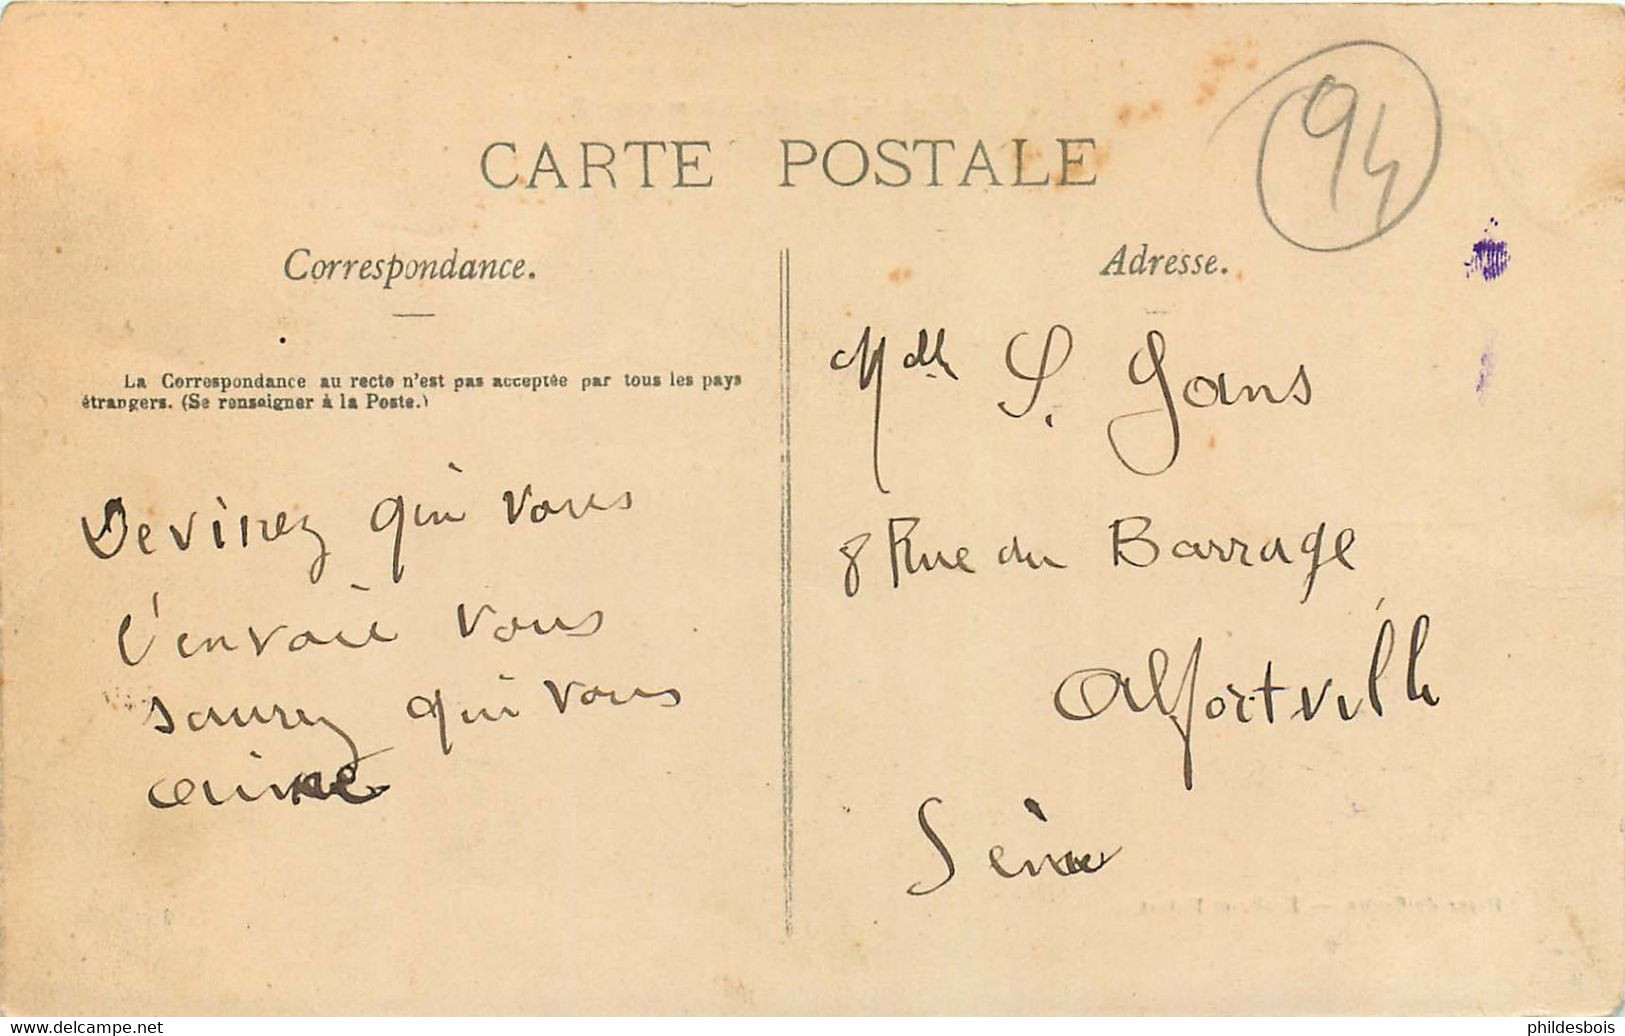 94
CARTE POSTALE
Correspondance.
La Correspondance au recto n'est pas acceptée par tous les pays
étrangers. (Se renseigner à la Poste.)
Devinez qui vous
l'envoie vous
saurez qui vous
aime
Adresse.
Mdlle S. Gans
8 Rue du Barrage
Alfortville
Seine
www.delcampe.net
phildesbois